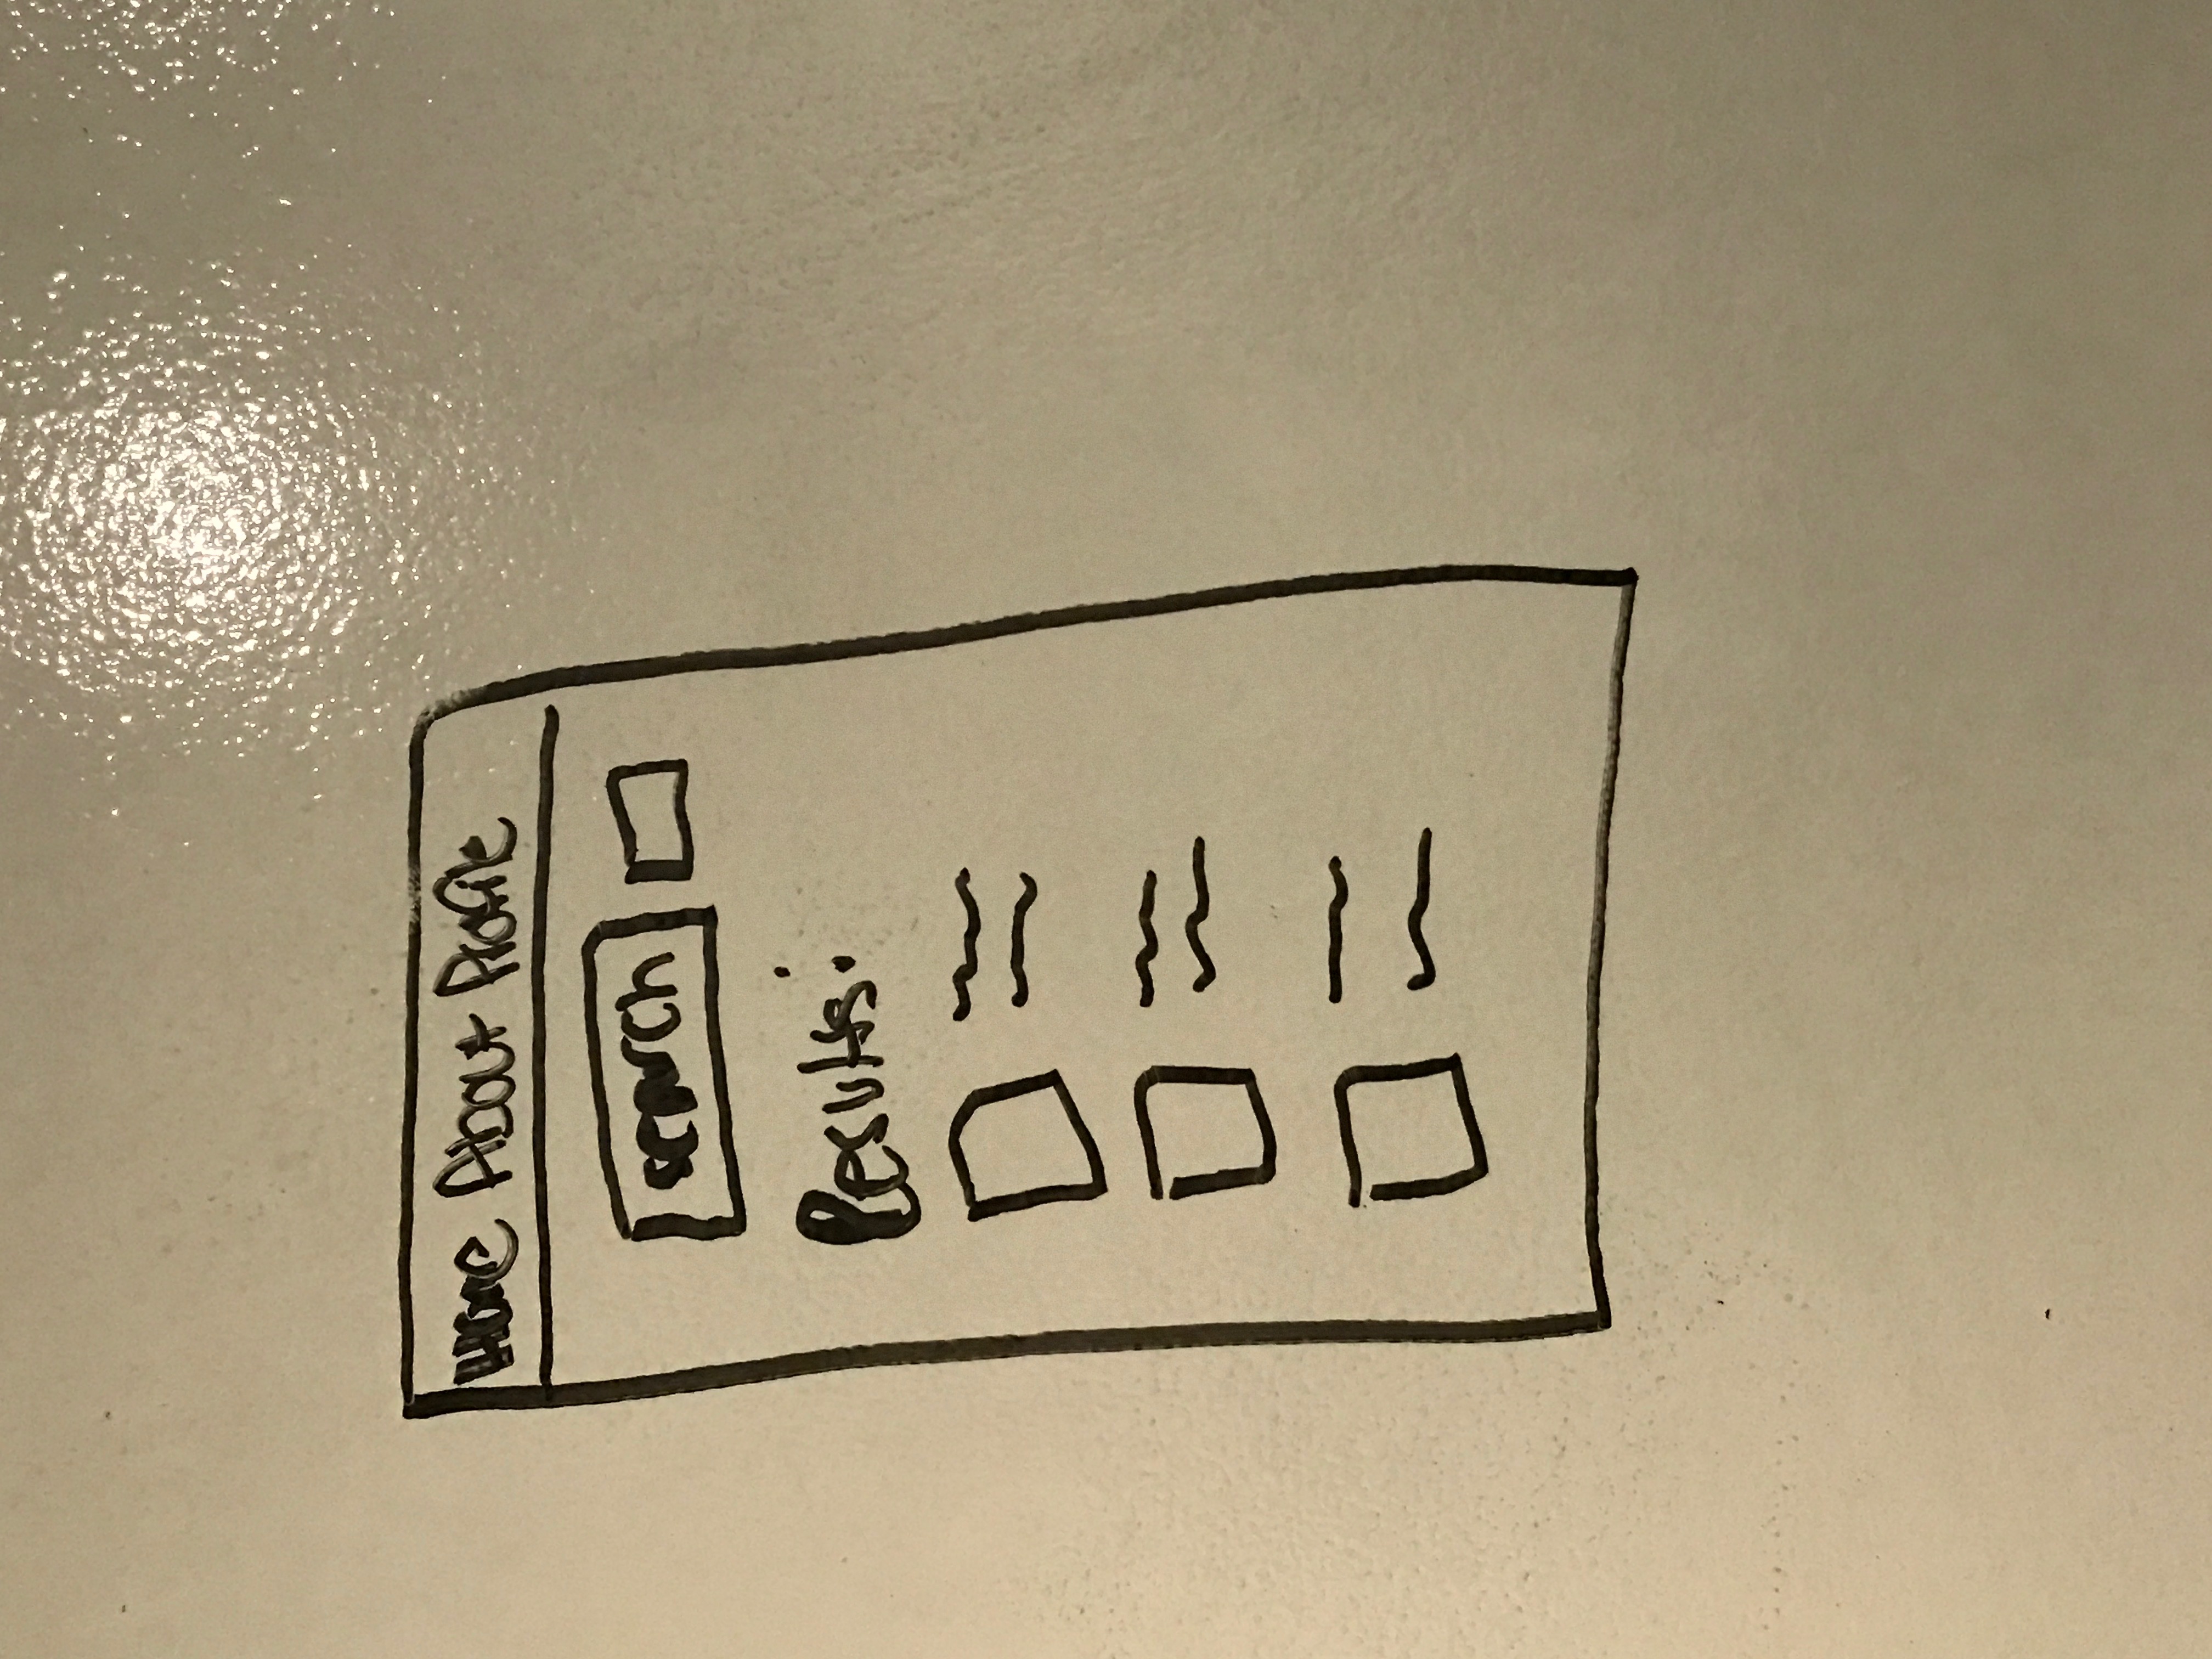 Home About Profile
search
Results: